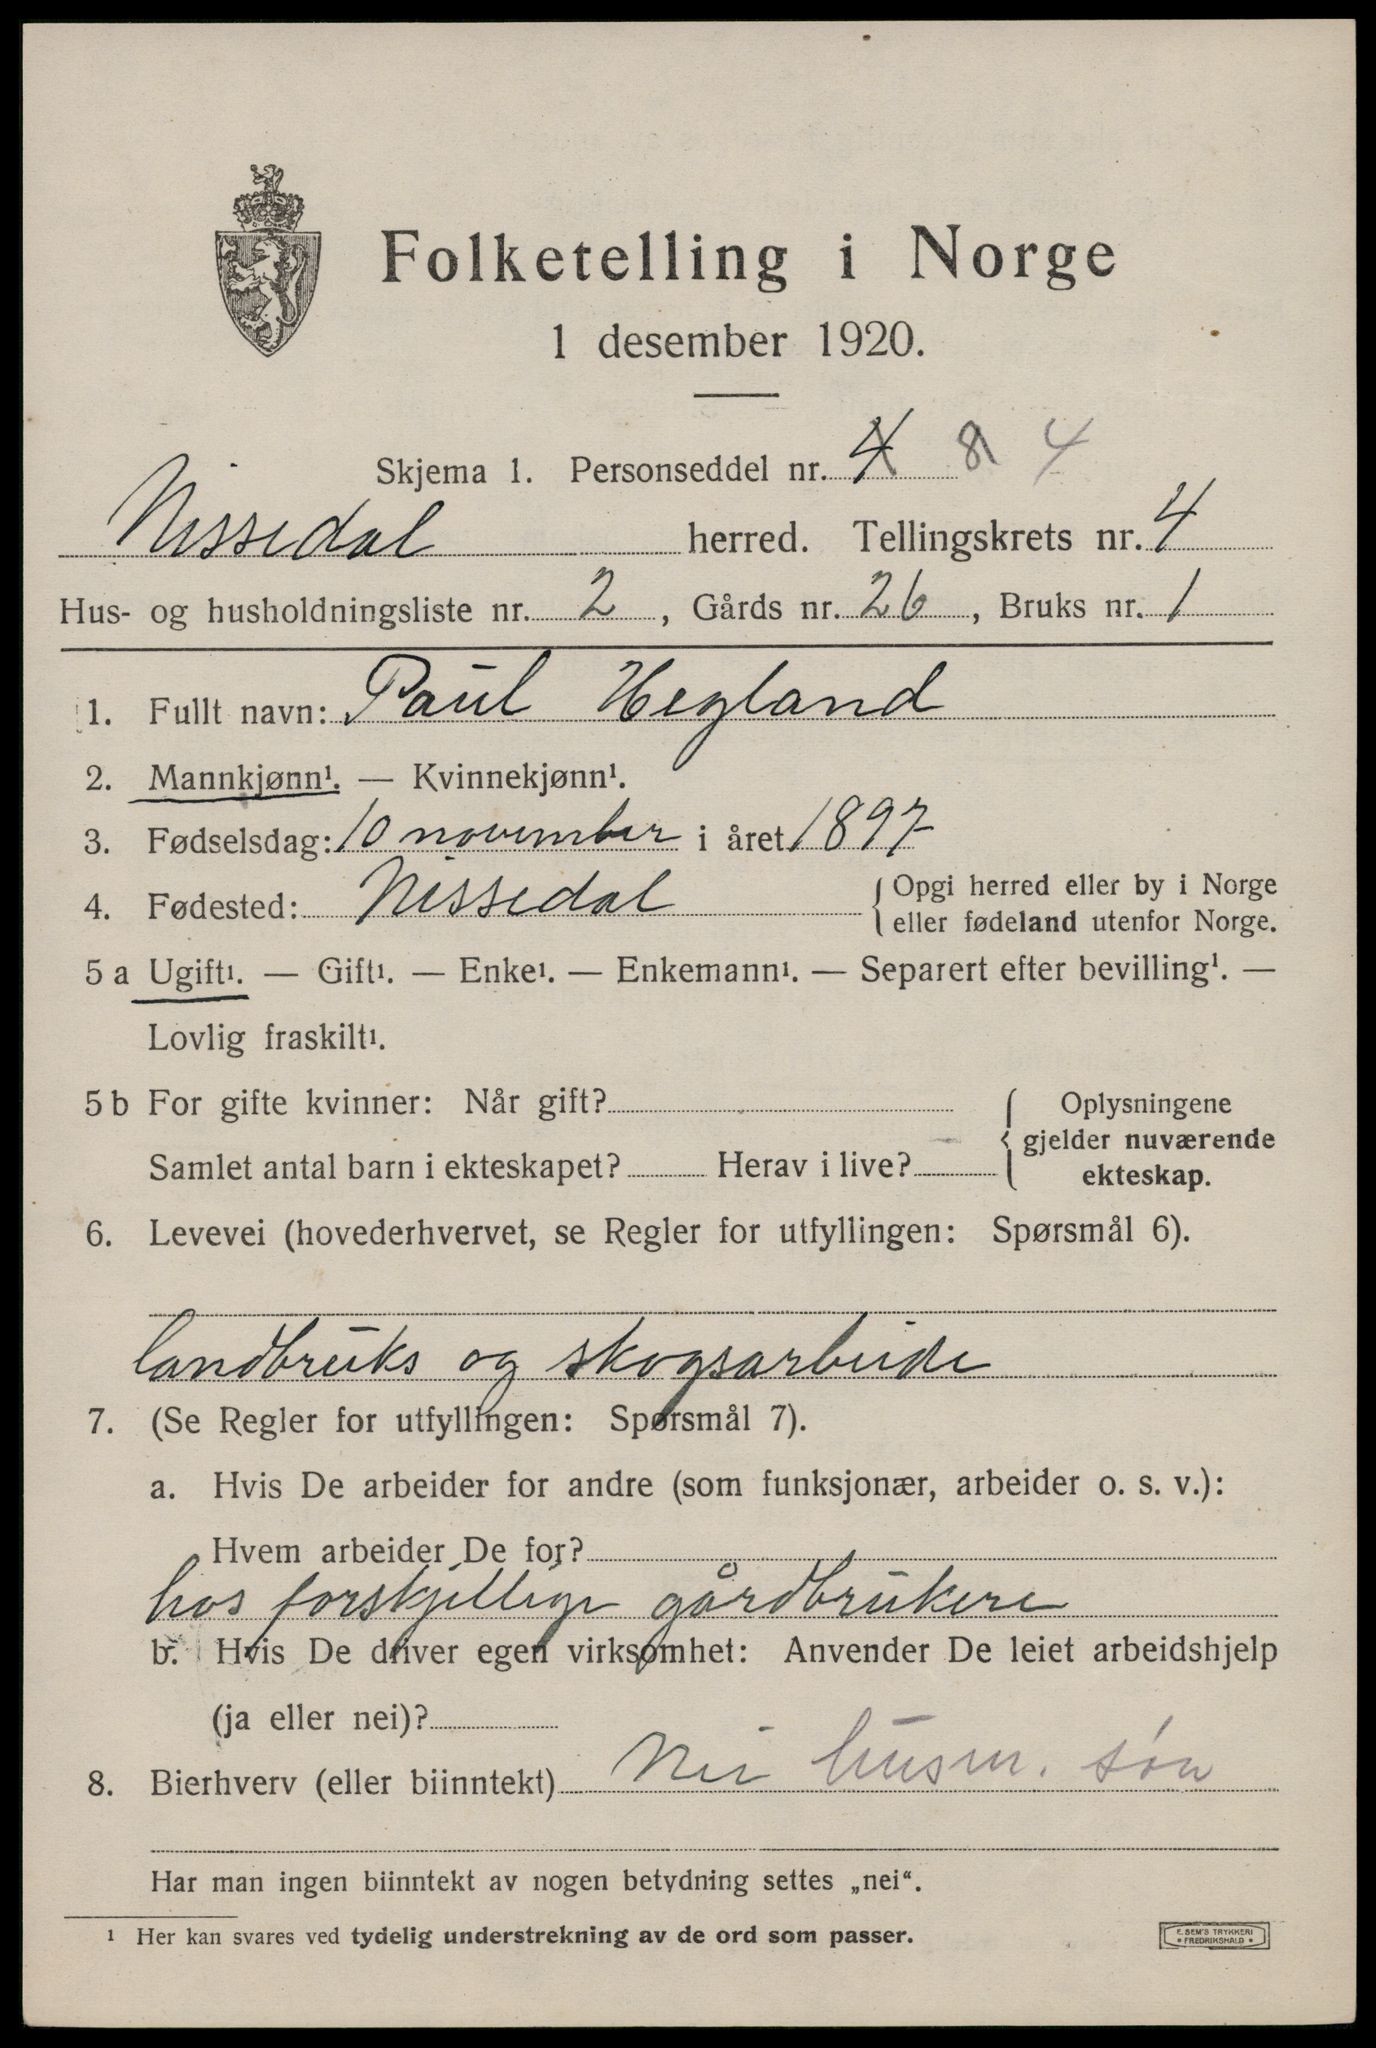 Folketelling i Norge
1 desember 1920.
Skjema 1. Personseddel nr. 4 8 4
Nissedal herred. Tellingskrets nr. 4
Hus- og husholdningsliste nr. 2, Gårds nr. 26, Bruks nr. 1
1. Fullt navn: Paul Hegland
2. Mannkjønn¹. — Kvinnekjønn¹.
3. Fødselsdag: 10 november i året 1897
4. Fødested: Nissedal { Opgi herred eller by i Norge
eller fødeland utenfor Norge.
5 a Ugift¹. — Gift¹. — Enke¹. — Enkemann¹. — Separert efter bevilling¹. —
Lovlig fraskilt¹.
5 b For gifte kvinner: Når gift? { Oplysningene
gjelder nuværende
Samlet antal barn i ekteskapet? Herav i live? ekteskap.
6. Levevei (hovederhvervet, se Regler for utfyllingen: Spørsmål 6).
landbruks og skogsarbeide
7. (Se Regler for utfyllingen: Spørsmål 7).
a. Hvis De arbeider for andre (som funksjonær, arbeider o. s. v.):
Hvem arbeider De for?
hos forskjellige gårdbrukere
b. Hvis De driver egen virksomhet: Anvender De leiet arbeidshjelp
(ja eller nei)?
8. Bierhverv (eller biinntekt) Nei husm. søn
Har man ingen biinntekt av nogen betydning settes „nei“.
¹ Her kan svares ved tydelig understrekning av de ord som passer.
E. SEM'S TRYKKERI
• FREDRIKSHALD •